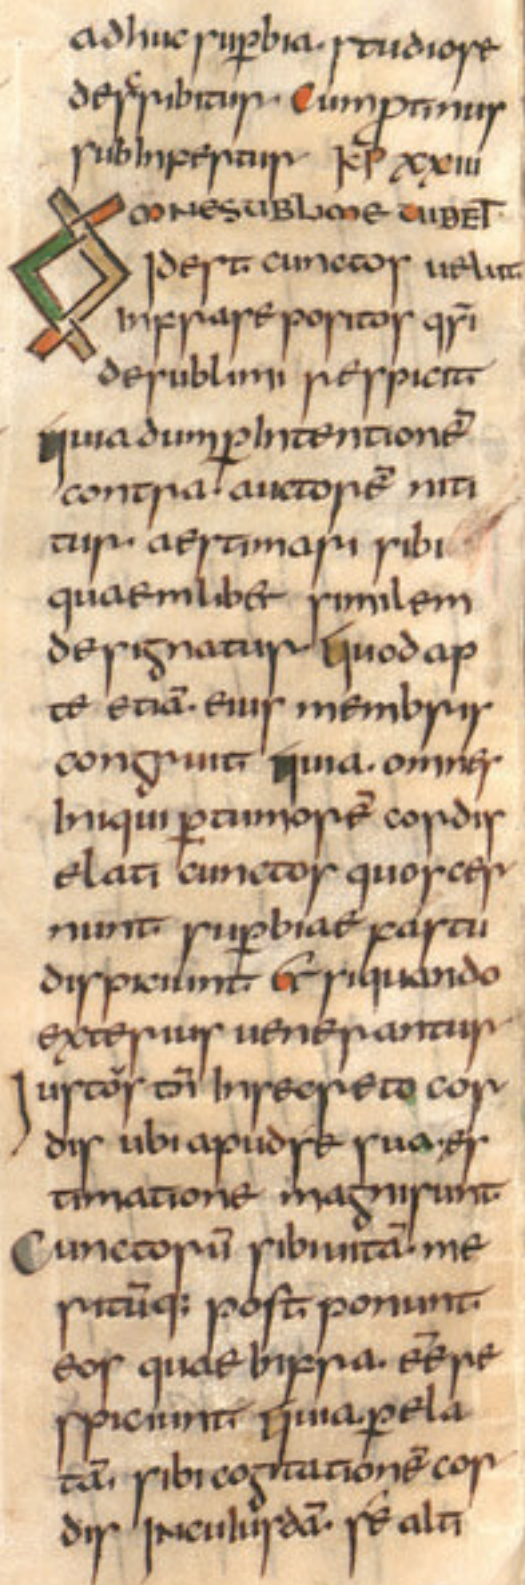 adhuc sup̱bia· studiose
describitur· Cum ꝓtinus
subinfertur k̅p̅ xxiii
OMNE SUBLIME UIDET
Id est· cunctos uelut·
infra se positos qs̅i
de sublimi respicit·
quia dum ꝑ intentione̅
contra· auctore̅ niti
tur· aestimari sibi
quaemlibet similem
designatur· Quod ap
te etia̅· eius membris
congruit· quia· omnes
iniqui ꝑ tumore̅ cordis
elati cunctos quos cer
nunt· suꝑbiae fastu
dispiciunt· Et si quando
exterius uenerantur
Iustos tm̅ in secreto cor
dis ubi apud se sua· es
timatione magni sunt·
Cunctoru̅ sibi uita̅· me
ritu̅q; post ponunt·
eos quae infra· ee̅ re
spiciunt· quia ꝑ ela
ta̅· sibi cogitatione̅ cor
dis In cuiusda̅· se alti